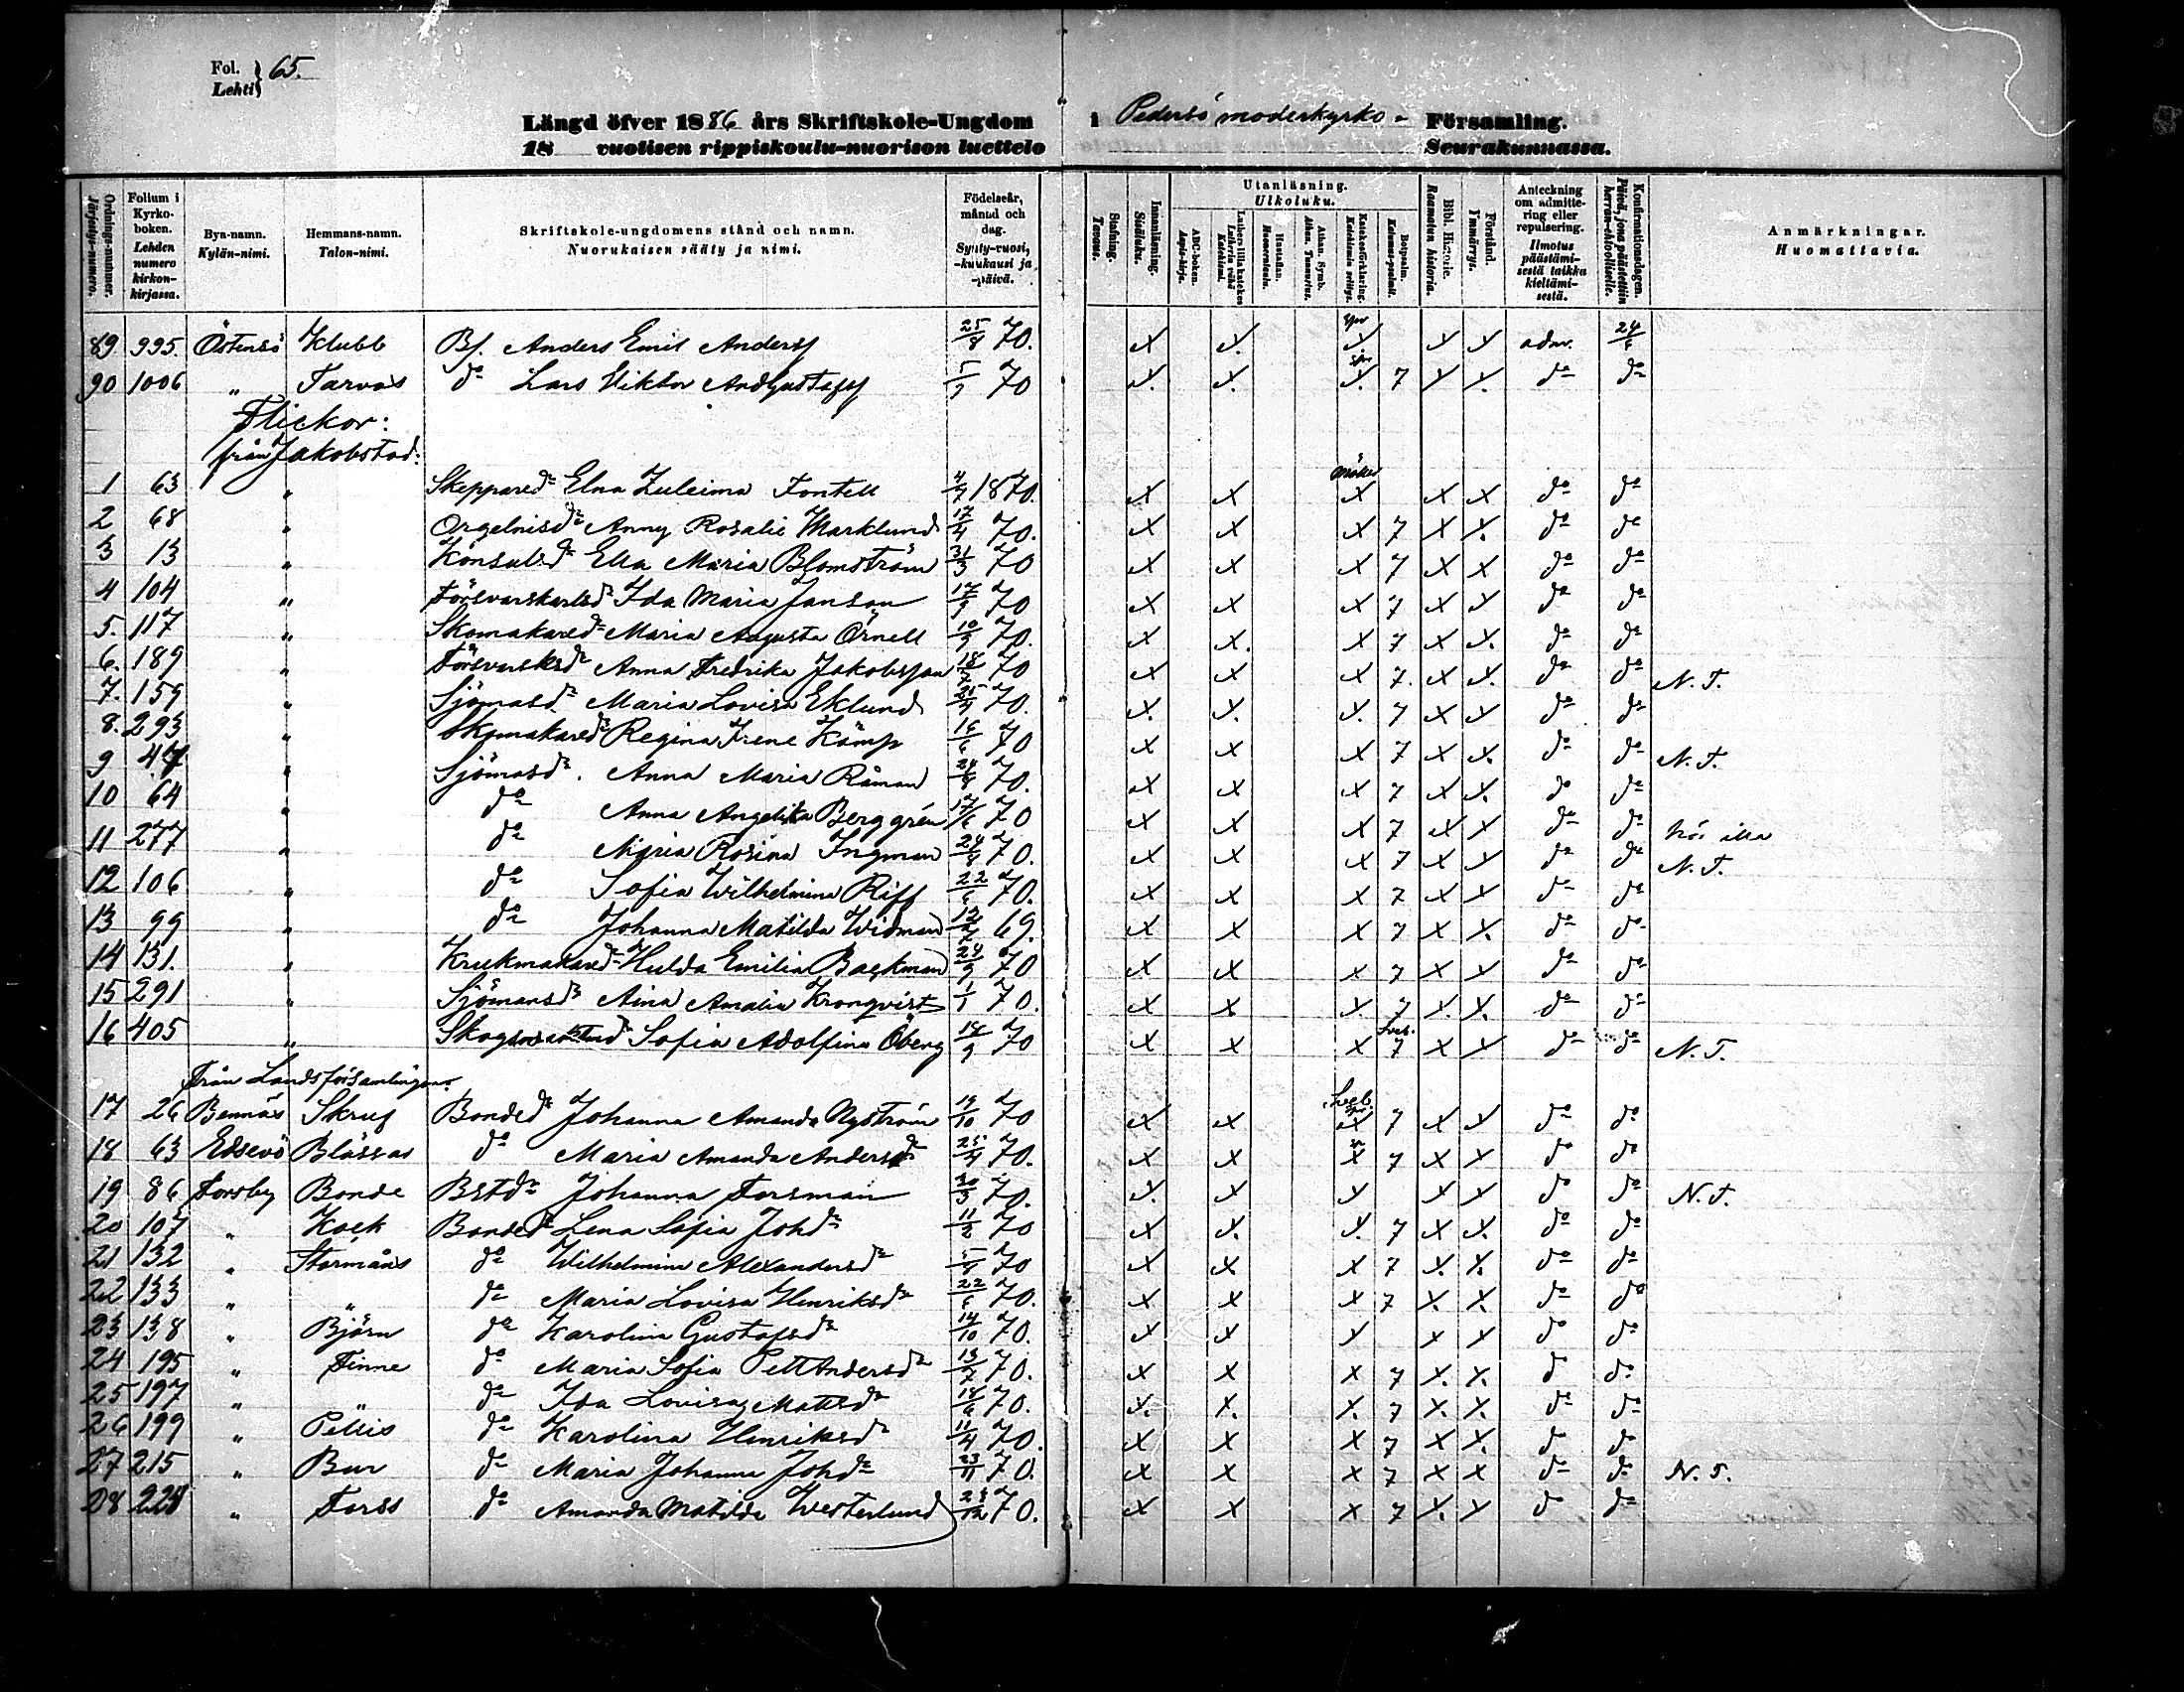 Fol. Lehti } 65.
Längd öfver 1886 års Skriftskole-Ungdom i Pedersö moderkyrko- Församling.
18 vuotisen rippiskoulu-nuorison luettelo Seurakunnassa.
Ordnings-nummer. Järjestys-numero. Folium i Kyrko-boken. Lehden numero kirkon-kirjassa. Bya-namn. Kylän-nimi. Hemmans-namn. Talon-nimi. Skriftskole-ungdomens stånd och namn. Nuorukaisen sääty ja nimi. Födelseår, månad och dag. Synty-vuosi, -kuukausi ja päivä. Stafning. Tavaus. Innanläsning. Sisäluku. Utanläsning. Ulkoluku. ABC-boken. Aapis-kirja. Luthers lilla katekes Lutherin vähä Katekismi. Hustaflan. Huoneentaulu. Athan. Symb. Athan. Tunnustus. Katekesförklaring. Katekismin selitys. Botpsalm. Katumus-psalmi. Bibl. Historie. Raamatun historia. Förstånd. Ymmärrys. Anteckning om admittering eller repulsering. Ilmotus päästämisestä taikka kieltämisestä. Konfirmationsdagen. Päivä, jona päästettiin herran-ehtoolliselle. Anmärkningar. Huomattavia.
89 995. Östensö Klubb Bs. Anders Emil Anderss 25/8 70. x x. x x x adm. 24/6
90 1006 " Tarvas do Lars Viktor AndGustafss 5/7 70 x. x. x. 7 x x. do do
Flickor:
från Jakobstad:
1 63 " Skeppared. Elna Zuleima Fontell 4/7 1870. x x x x x do do
2 68 " Orgelnisd. Anny Rosalie Marklund 17/4 70. x x x 7 x x. do do
3 13 " Konsulsd. Ella Maria Blomström 31/3 70 x x x 7 x x do do
4 104 " Försvarskarlsd. Ida Maria Janson 17/9 70 x x x 7 x x do do
5. 117 " Skomakared. Maria Augusta Örnell 10/9 70. x x. x 7 x x. do do
6. 189 " Försvarsksd. Anna Fredrika Jakobsson 18/ 70 x x x 7. x x. do do N. T.
7. 159 " Sjömasd. Maria Lovisa Eklund 70. x. x. x. 7 x x do do
8. 293 " Skomakared. Regina Irene Kämp 16/6 70 x x x 7 x x. do do N. T.
9 47 " Sjömasd. Anna Maria Råman 70. x x x 7 x x. do do
10 64 " do Anna Angelika Berggrén 17/6 70 x x x 7 x x do do hör illa
11 277 " do Maria Rosina Ingman 24/8 70. x x x 7 x x do do N. T.
12 106 " do Sofia Wilhelmina Riff 22/6 70. x x x 7 x x do do
13 99 " do Johanna Matilda Widman 69. x x x 7 x x. do do
14 131. " Krukmakared. Hulda Emilia Backman 24/9 70 x x x 7 x x do do
15 291 " Sjömansd. Aina Amalia Kronqvist 1/1 70. x x x. 7 x. x. do do
16 405 " Sofia Adolfina Öberg 18/9 70 x x x 7 x x do do N. T.
Från Landsförsamlingen:
17 26 Bennäs Skruf Bonded. Johanna Amanda Nyström 19/10 70 x x x 7 x x do do
18 63 Edsevö Blässas do Maria Amanda Andersd. 25/4 70. x x x 7 x x do do
19 86 Forsby Bonde Bstd. Johanna Forsman 30/3 70. x. x x x x do do N. T.
20 107 " Kock Bonded. Lena Sofia Johd. 11/2 70 x x. x. 7 x x. do do
21 132 " Stormåns do Wilhelmina Alexandersd. 5/8 70 x x x 7 x. x. do do
22 133 " " do Maria Lovisa Henriksd. 22/6 70. x x x 7 x. x. do do
23 138 " Björn do Karolina Gustafsd. 14/10 70. x x x x x do do
24 195 " Finne do Maria Sofia PettAndersd. 13/7 70. x x x 7 x. x. do do
25 197 " " do Ida Lovisa Mattsd. 18/6 70. x. x. x. 7 x. x. do do
26 199 " Pellis do Karolina Henriksd. 11/4 70. x x x 7 x x. do do
27 215 " Bur do Maria Johanna Johd. 23/11 70. x x x 7 x x do do N. T.
28 " Forss do Amanda Matilda Westerlund 23/12 70. x x x 7 x. x do do